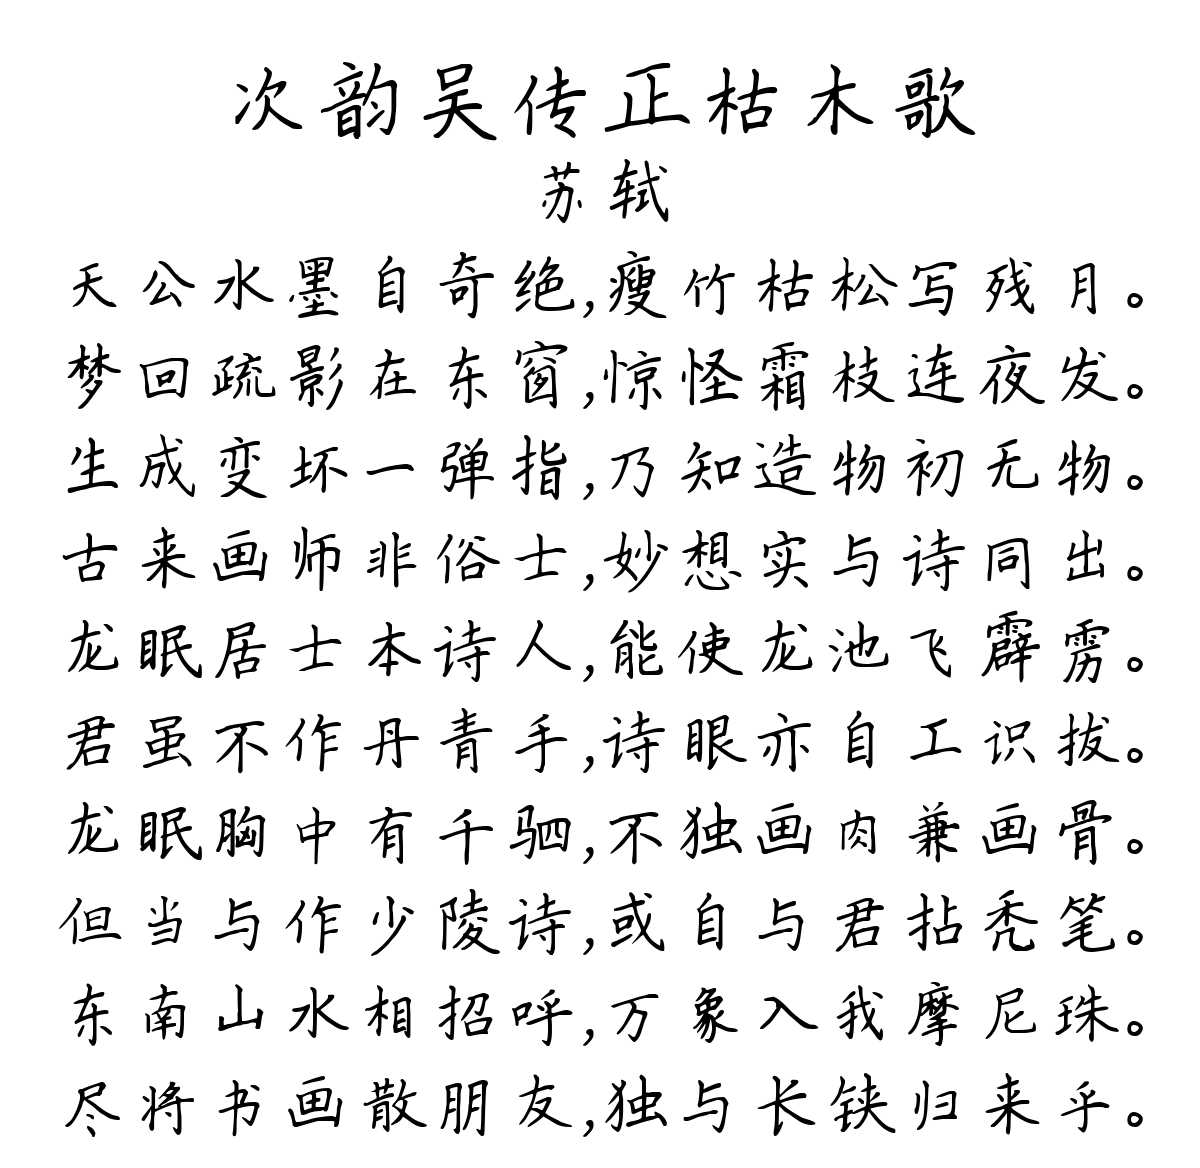 次韵吴传正枯木歌
苏轼
天公水墨自奇绝,瘦竹枯松写残月。
梦回疏影在东窗,惊怪霜枝连夜发。
生成变坏一弹指,乃知造物初无物。
古来画师非俗士,妙想实与诗同出。
龙眠居士本诗人,能使龙池飞霹雳。
君虽不作丹青手,诗眼亦自工识拔。
龙眠胸中有千驷,不独画肉兼画骨。
但当与作少陵诗,或自与君拈秃笔。
东南山水相招呼,万象入我摩尼珠。
尽将书画散朋友,独与长铗归来乎。